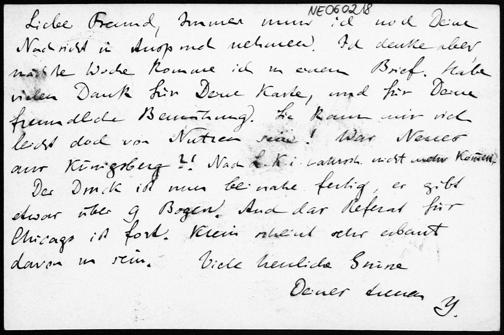 NE060218
Liebe Freund, Immer muss ich noch Deine
Nachsicht in Anspruch nehmen. Ich denke aber
nächste Woche komme ich zu einem Brief. Habe
vielen Dank für Deine Karte, und für Deine
freundliche Bemühung. Sie kann mir viel
leicht doch von Nutzen sein! War Neues
aus Königsberg?! Nach nicht mehr kommen.
Der Druck ist nun beinahe fertig, er gibt
etwas über 9 Bogen. Auch das Referat für
Chicago ist fort. Klein scheint sehr erbaut
davon zu sein. Viele herzliche Grüsse
Deines